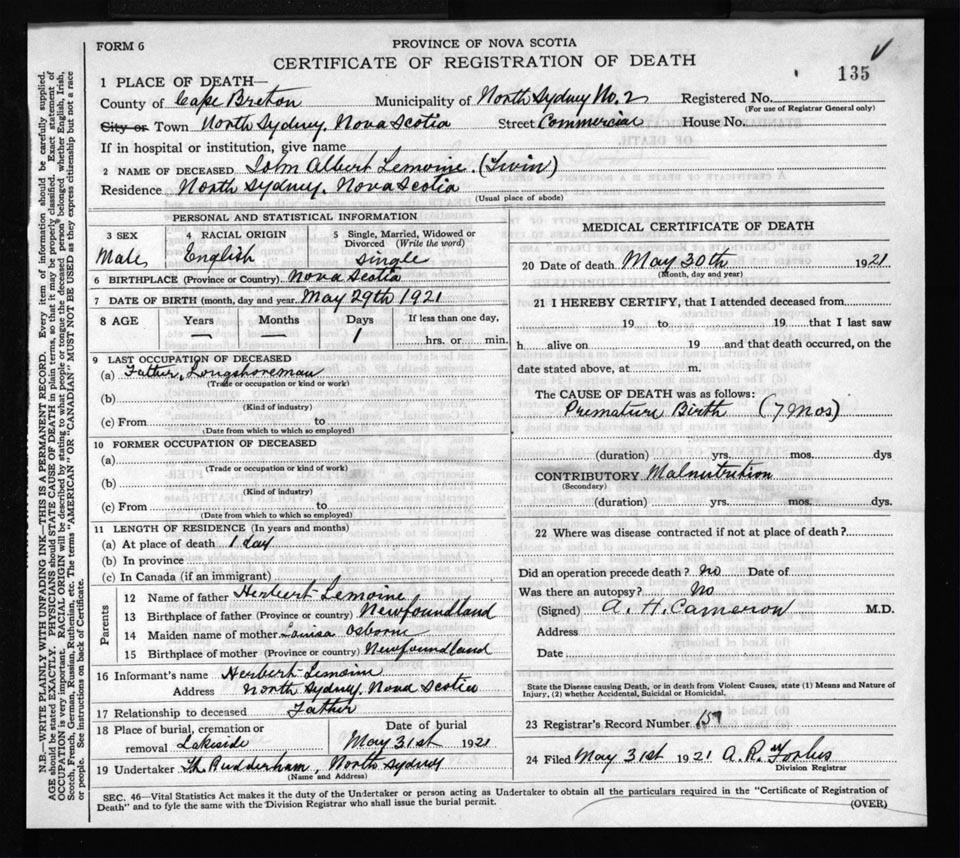 FORM 6
PROVINCE OF NOVA SCOTIA
CERTIFICATE OF REGISTRATION OF DEATH
135
1 PLACE OF DEATH—
County of Cape Breton Municipality of North Sydney No. 2 Registered No.
(For use of Registrar General only)
City or Town North Sydney, Nova Scotia Street Commercial House No.
If in hospital or institution, give name
2 NAME OF DECEASED John Albert Lemoine (Twin)
Residence North Sydney, Nova Scotia
(Usual place of abode)
PERSONAL AND STATISTICAL INFORMATION
3 SEX 4 RACIAL ORIGIN 5 Single, Married, Widowed or Divorced (Write the word)
Male English Single
6 BIRTHPLACE (Province or Country) Nova Scotia
7 DATE OF BIRTH (month, day and year) May 29th 1921
8 AGE Years Months Days If less than one day,
— — 1 hrs. or min.
9 LAST OCCUPATION OF DECEASED
(a) Father, Longshoreman
(Trade or occupation or kind of work)
(b)
(Kind of industry)
(c) From to
(Date from which to which so employed)
10 FORMER OCCUPATION OF DECEASED
(a)
(Trade or occupation or kind of work)
(b)
(Kind of industry)
(c) From to
(Date from which to which so employed)
11 LENGTH OF RESIDENCE (In years and months)
(a) At place of death 1 day
(b) In province
(c) In Canada (if an immigrant)
Parents
12 Name of father Herbert Lemoine
13 Birthplace of father (Province or country) Newfoundland
14 Maiden name of mother Louisa Osborne
15 Birthplace of mother (Province or country) Newfoundland
16 Informant's name Herbert Lemoine
Address North Sydney, Nova Scotia
17 Relationship to deceased Father
18 Place of burial, cremation or removal Lakeside
Date of burial
May 31st 1921
19 Undertaker Rudderham, North Sydney
(Name and Address)
MEDICAL CERTIFICATE OF DEATH
20 Date of death May 30th 1921
(Month, day and year)
21 I HEREBY CERTIFY, that I attended deceased from
19 to 19 that I last saw
h alive on 19 and that death occurred, on the
date stated above, at m.
The CAUSE OF DEATH was as follows:
Premature Birth (7 Mos)
(duration) yrs. mos. dys
CONTRIBUTORY Malnutrition
(Secondary)
(duration) yrs. mos. dys.
22 Where was disease contracted if not at place of death?
Did an operation precede death? No Date of
Was there an autopsy? No
(Signed) A. H. Cameron M.D.
Address
Date
State the Disease causing Death, or in death from Violent Causes, state (1) Means and Nature of
Injury, (2) whether Accidental, Suicidal or Homicidal.
23 Registrar's Record Number
24 Filed May 31st 1921 A. R. Forbes
Division Registrar
SEC. 46—Vital Statistics Act makes it the duty of the Undertaker or person acting as Undertaker to obtain all the particulars required in the "Certificate of Registration of
Death" and to fyle the same with the Division Registrar who shall issue the burial permit.
(OVER)
N.B.—WRITE PLAINLY WITH UNFADING INK—THIS IS A PERMANENT RECORD. Every item of information should be carefully supplied.
AGE should be stated EXACTLY. PHYSICIANS should STATE CAUSE OF DEATH in plain terms, so that it may be properly classified. Exact statement of
OCCUPATION is very important. RACIAL ORIGIN will be described by stating to what people or tongue the deceased person belonged whether English, Irish,
Scotch, French, German, Russian, Ruthenian, etc. The terms "AMERICAN" OR "CANADIAN" MUST NOT BE USED as they express citizenship but not a race
or people. See instructions on back of Certificate.